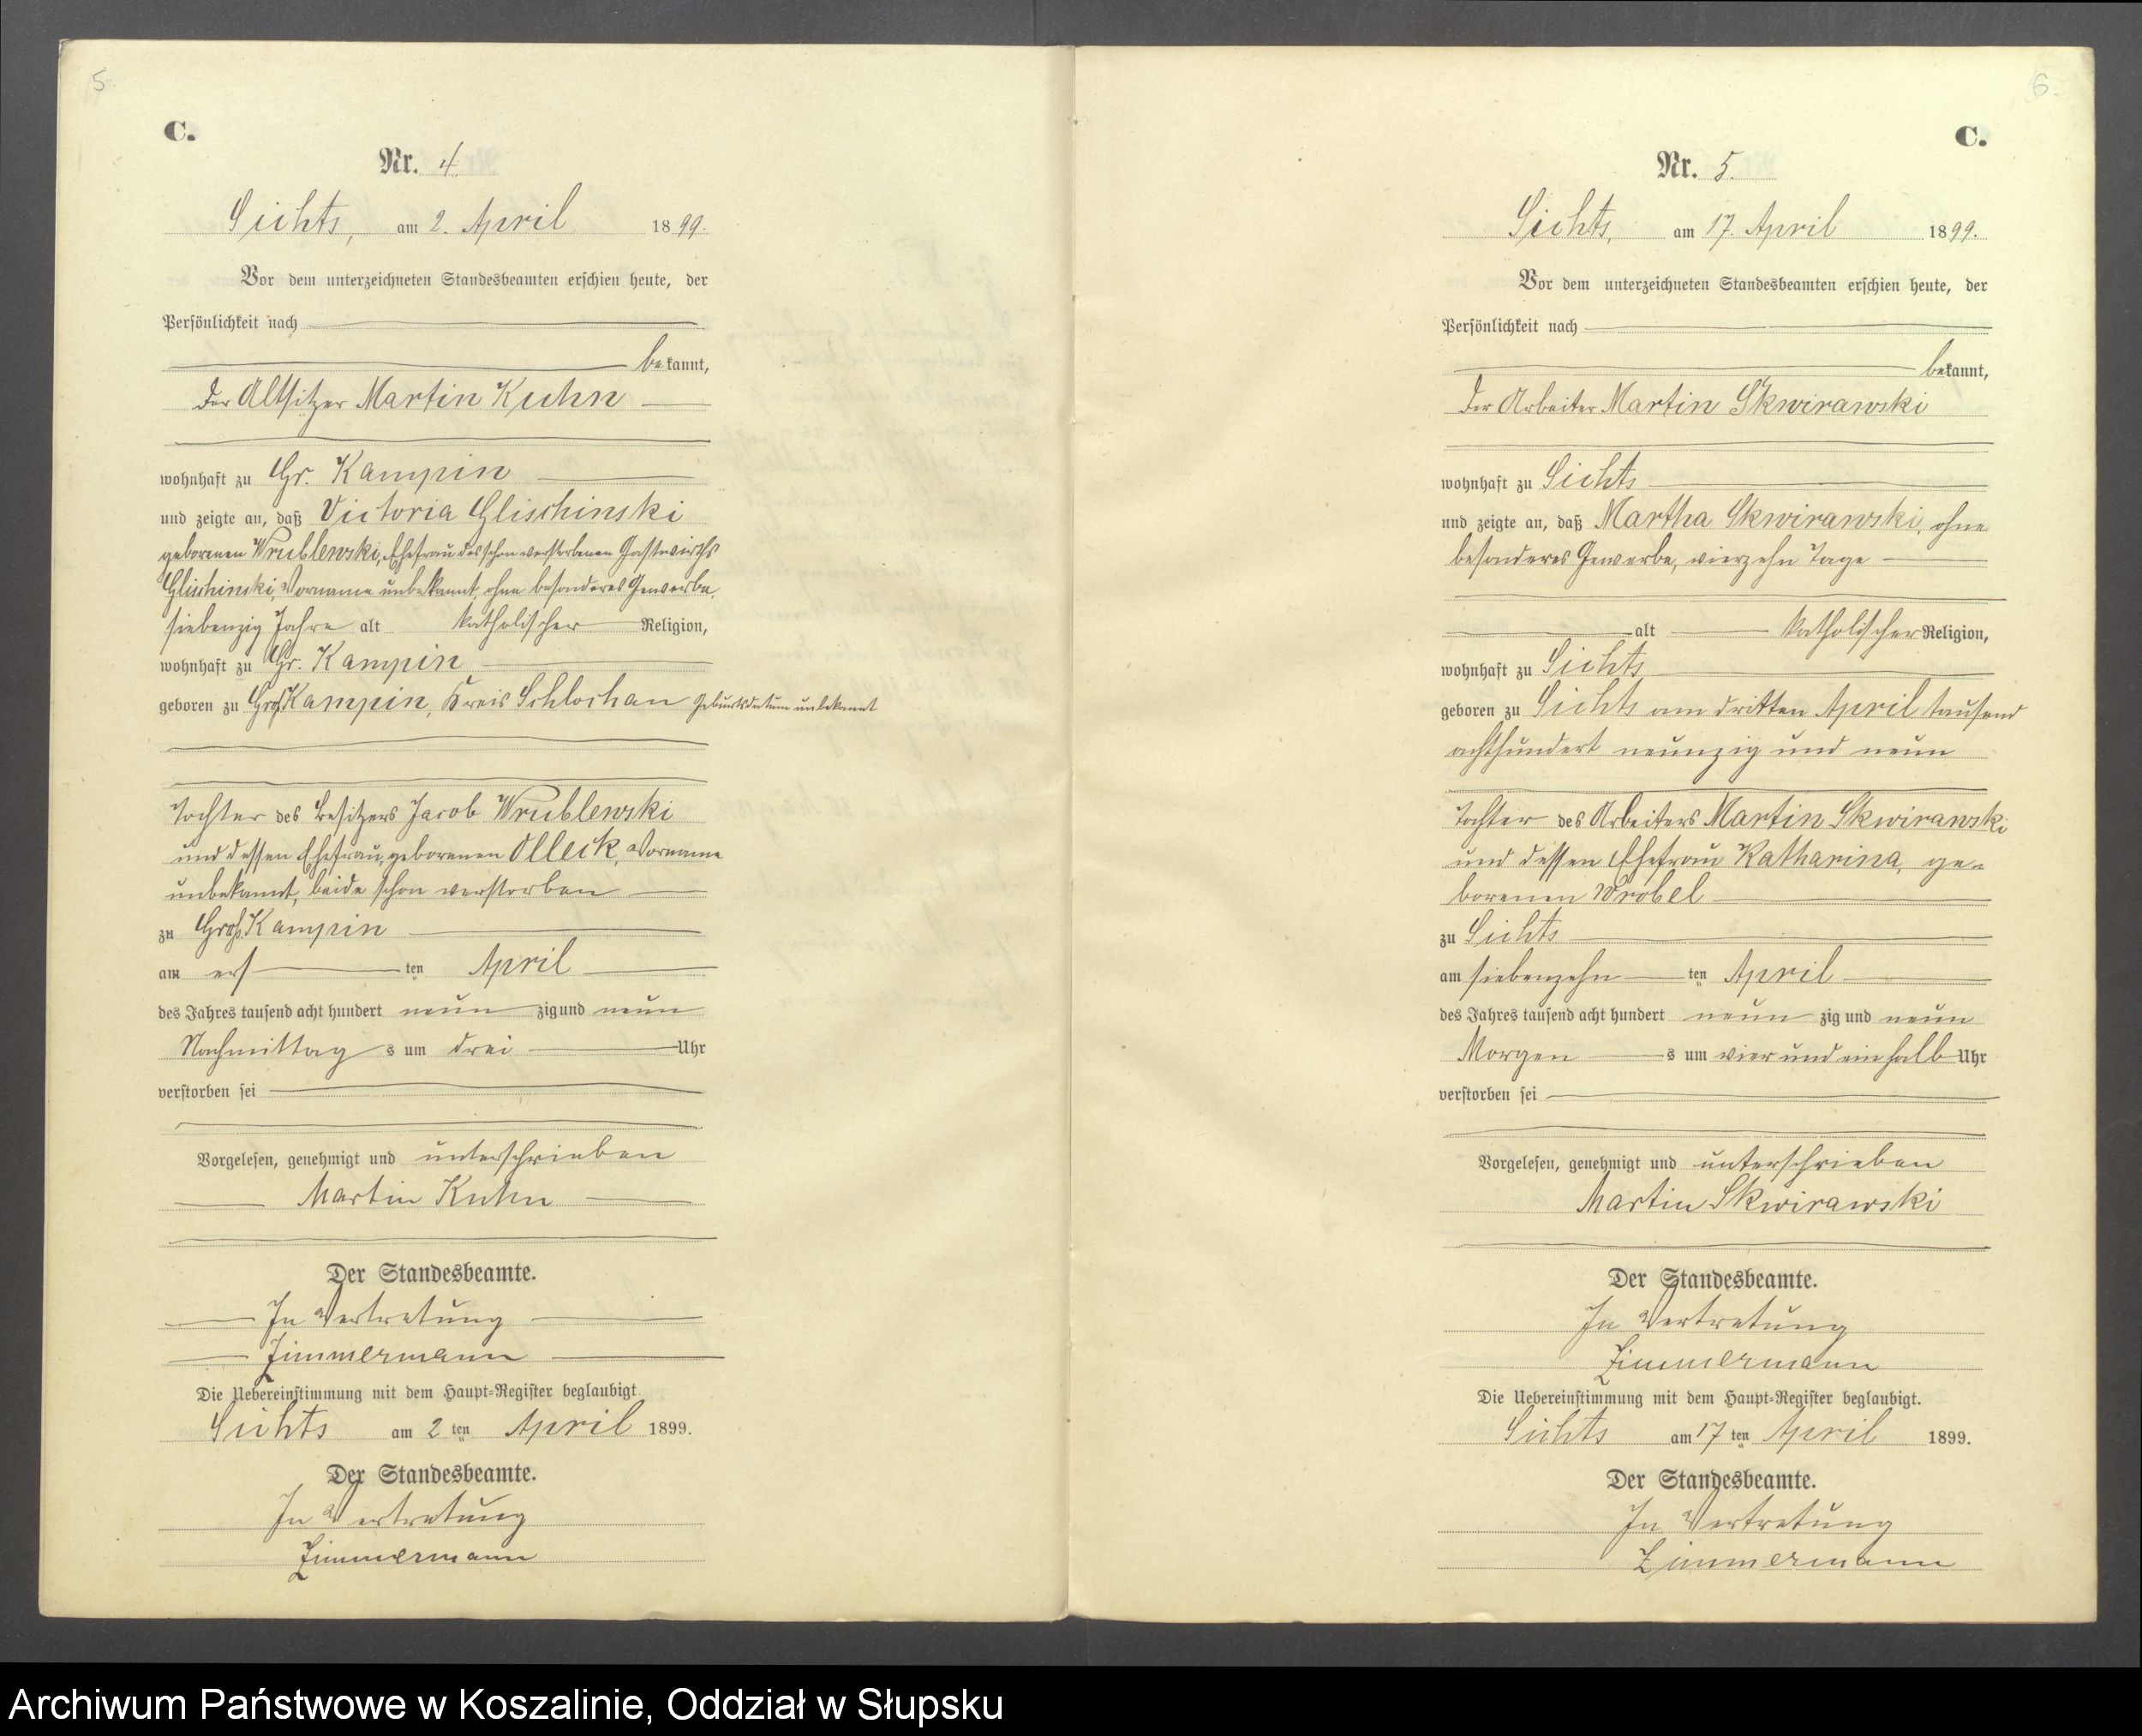 5
C.
Nr. 4.
Sichts, am 2. April 1899.
Vor dem unterzeichneten Standesbeamten erschien heute, der
Persönlichkeit nach
bekannt,
der Altsitzer Martin Kuhn
wohnhaft zu Gr. Kampin
und zeigte an, daß Victoria Glischinski
geborenen Wrublewski, Ehefrau des schon verstorbenen Gastwirths
Glischinski, Vorname unbekannt, ohne besonderes Gewerbe,
siebenzig Jahre alt katholischer Religion,
wohnhaft zu Gr. Kampin
geboren zu Groß Kampin, Kreis Schlochau Geburtsdatum unbekannt
Tochter des Besitzers Jacob Wrublewski
und dessen Ehefrau, geborenen Olleck, Vorname
unbekannt, beide schon verstorben
zu Groß Kampin
am ersten April
des Jahres tausend acht hundert neunzig und neun
Nachmittags um drei Uhr
verstorben sei
Vorgelesen, genehmigt und unterschrieben
Martin Kuhn
Der Standesbeamte.
In Vertretung
Zimmermann
Die Uebereinstimmung mit dem Haupt-Register beglaubigt
Sichts am 2ten April 1899.
Der Standesbeamte.
In Vertretung
Zimmermann
6
C.
Nr. 5.
Sichts, am 17. April 1899.
Vor dem unterzeichneten Standesbeamten erschien heute, der
Persönlichkeit nach
bekannt,
der Arbeiter Martin Skwirawski
wohnhaft zu Sichts
und zeigte an, daß Martha Skwirawski, ohne
besonderes Gewerbe, vierzehn Tage
alt katholischer Religion,
wohnhaft zu Sichts
geboren zu Sichts am dritten April tausend
achthundert neunzig und neun
Tochter des Arbeiters Martin Skwirawski
und dessen Ehefrau Katharina, ge-
borenen Wrobel
zu Sichts
am siebenzehnten April
des Jahres tausend acht hundert neunzig und neun
Morgens um vier und ein halb Uhr
verstorben sei
Vorgelesen, genehmigt und unterschrieben
Martin Skwirawski
Der Standesbeamte.
In Vertretung
Zimmermann
Die Uebereinstimmung mit dem Haupt-Register beglaubigt.
Sichts am 17ten April 1899.
Der Standesbeamte.
In Vertretung
Zimmermann
Archiwum Państwowe w Koszalinie, Oddział w Słupsku